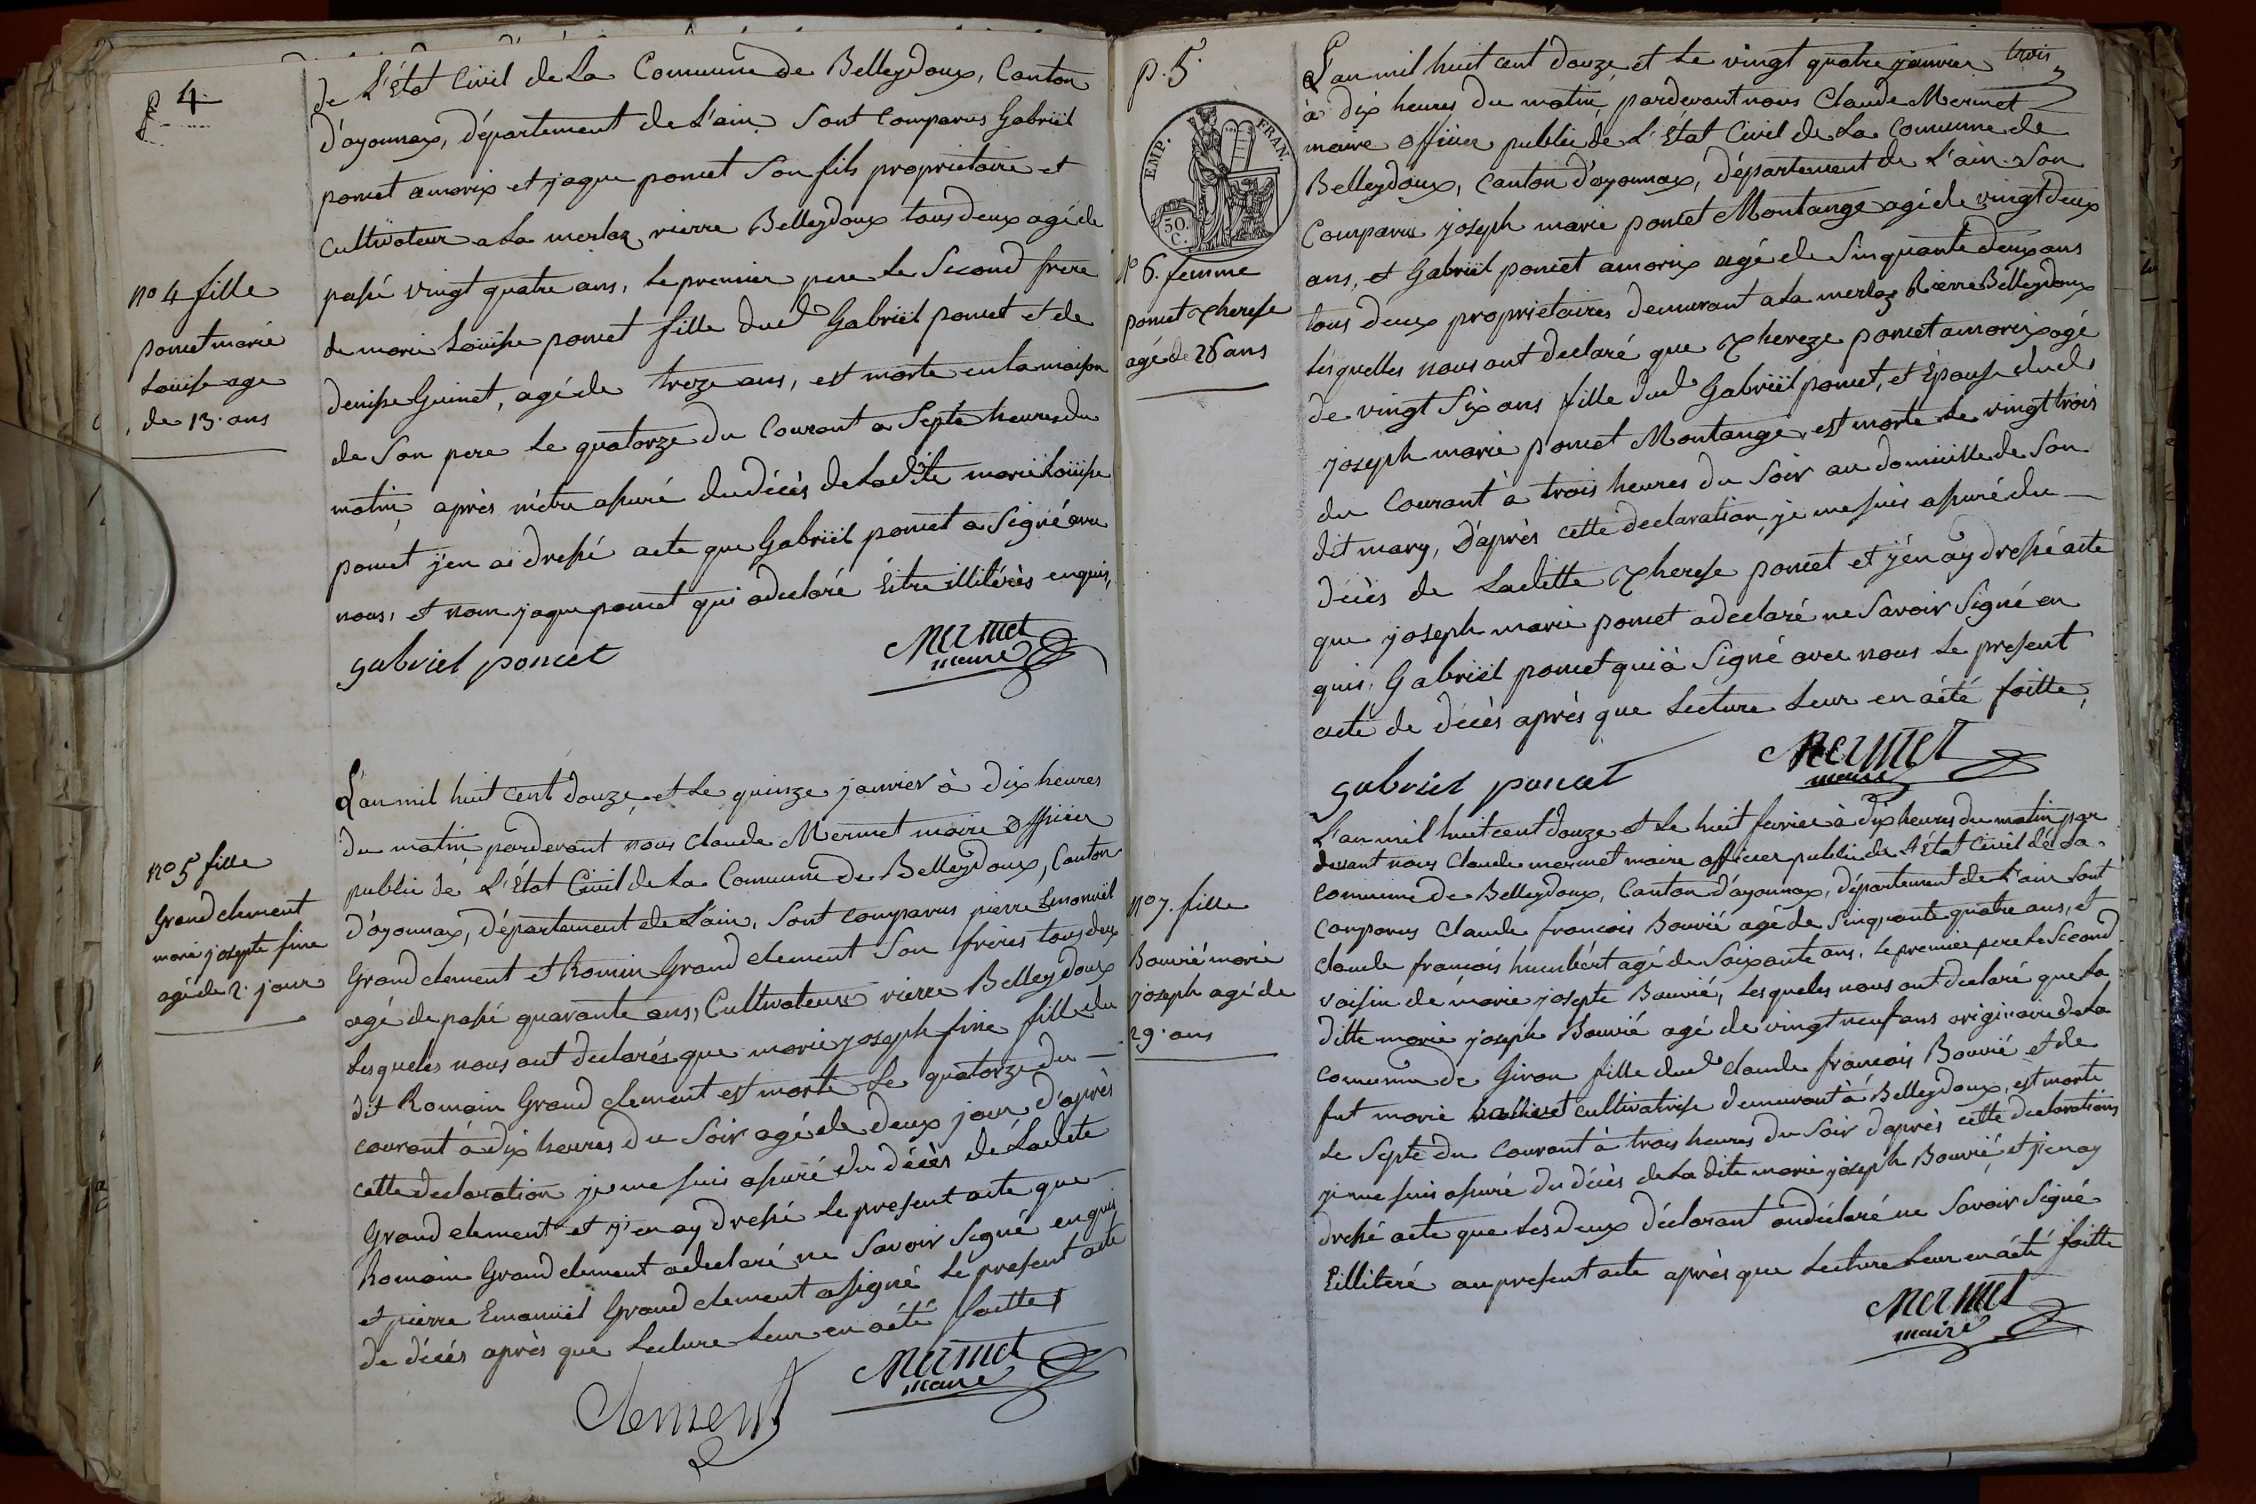 p 4
de L'état Civil de La Commune de Belleydoux, Canton
d'ayonnax, département de L'ain. Sont Comparus Gabriël
poncet amorix et jaque poncet Son fils proprietaire et
Cultivateur a La merlaz rierre Belleydoux tous deux agé de
passé vingt quatre ans, Le premier pere Le Second frere
de marie Loüise poncet fille dud Gabriël poncet et de
denise Guinet, agé de treze ans, est morte en La maison
de Son pere Le quatorze du Courant a Septe heures du
matin, après m'être assuré du décès de La dite marie Loüise
poncet j'en ai dressé acte que Gabriël poncet a Signé avec
nous, et nom jaque poncet qui a declaré Être illitérés enquis,
gabriel poncet
Mermet
maire
no 4 fille
poncet marie
Loüise age
de 13. ans
L'an mil huit cent douze, et Le quinze janvier à dix heures
du matin pardevant nous Claude Mermet maire Officier
public de L'État Civil de La Commune de Belleydoux, Canton
d'oyonnax, département de L'ain, Sont comparus pierre Emanuël
Grand clement et Romin Grand clement Son frères tous deux
agé de passé quarante ans, Cultivateurs rierre Belleydoux
Lesqueles nous ont declarés que marie joseph fine fille du
dit Romain Grand clement est morte Le quatorze du —
courant à dix heures du Soir agé de deux jour, d'après
cette declaration je me suis assuré du décès de Ladite
Grand clement et j'en ay dressé Le present acte que
Romain Grand clement a declaré ne Savoir Signé enquis
et pierre Emanuël Grand clement a signé Le present acte
de décés après que Lecture Leur en a été faitte,
Clement
Mermet
maire
no 5 fille
Grand clement
marie josepte fine
agé de 2. jour
p. 5.
EMP. FRAN.
50.
C.
L'an mil huit cent douze et Le vingt quatre janvier trois
à dix heures du matin pardevant nous Claude Mermet
maire officier public de L'État Civil de La Commune de
Belleydoux, Canton d'oyonnax, département de L'ain. Son
Comparue joseph marie poncet Montange agé de vingt deux
ans, et Gabriël poncet amorix agé de Sinquante deux ans
tous deux proprietaires demeurant a La merlaz Rierre Belleydoux
Lesquelles nous ont declaré que Thereze poncet amorix agé
de vingt Six ans fille dud Gabriël poncet, et Épouse dud
joseph marie poncet Montange, est morte Le vingt trois
du Courant à trois heures du Soir au domicille de Son
dit mary, D'après cette declaration je me suis assuré du —
décès de Laditte Therese poncet et j'en ay dressé acte
que joseph marie poncet a declaré ne Savoir Signé en
quis, Gabriël poncet qui à Signé avec nous Le present
acte de décès après que Lecture Leur en a été faitte,
gabriel poncet
Mermet
maire
No 6. femme
poncet Therese
agé de 26 ans
L'an mil huit cent douze et Le huit fevrier à dix heures du matin par
devant nous Claude mermet maire officier public de L'État Civil de La
commune de Belleydoux, Canton d'ayonnax, département de L'ain Sont
comparus Claude francois Bouvié agé de Sinquante quatre ans, et
claude francois humbért agé de Soixante ans, Le premier pere Le Second
voisin de marie josepte Bouvié, Lesqueles nous ont declaré que La
ditte marie joseph Bouvié agé de vingt neuf ans originaire de La
commune de Giron fille dud claude francois Bouvié et de
fut marie cultivatrise demeurant à Belleydoux, est morte
Le Septe du Courant à trois heures du Soir d'après cette declarations
je me suis assuré du décès de La dite marie joseph Bouvié, et j'en ay
dressé acte que Les deux déclarant on déclaré ne Savoir Signé
Eillitéré au present acte après que Lecture Leur en a été faitte
Mermet
maire
no 7. fille
Bouvié marie
joseph agé de
29. ans